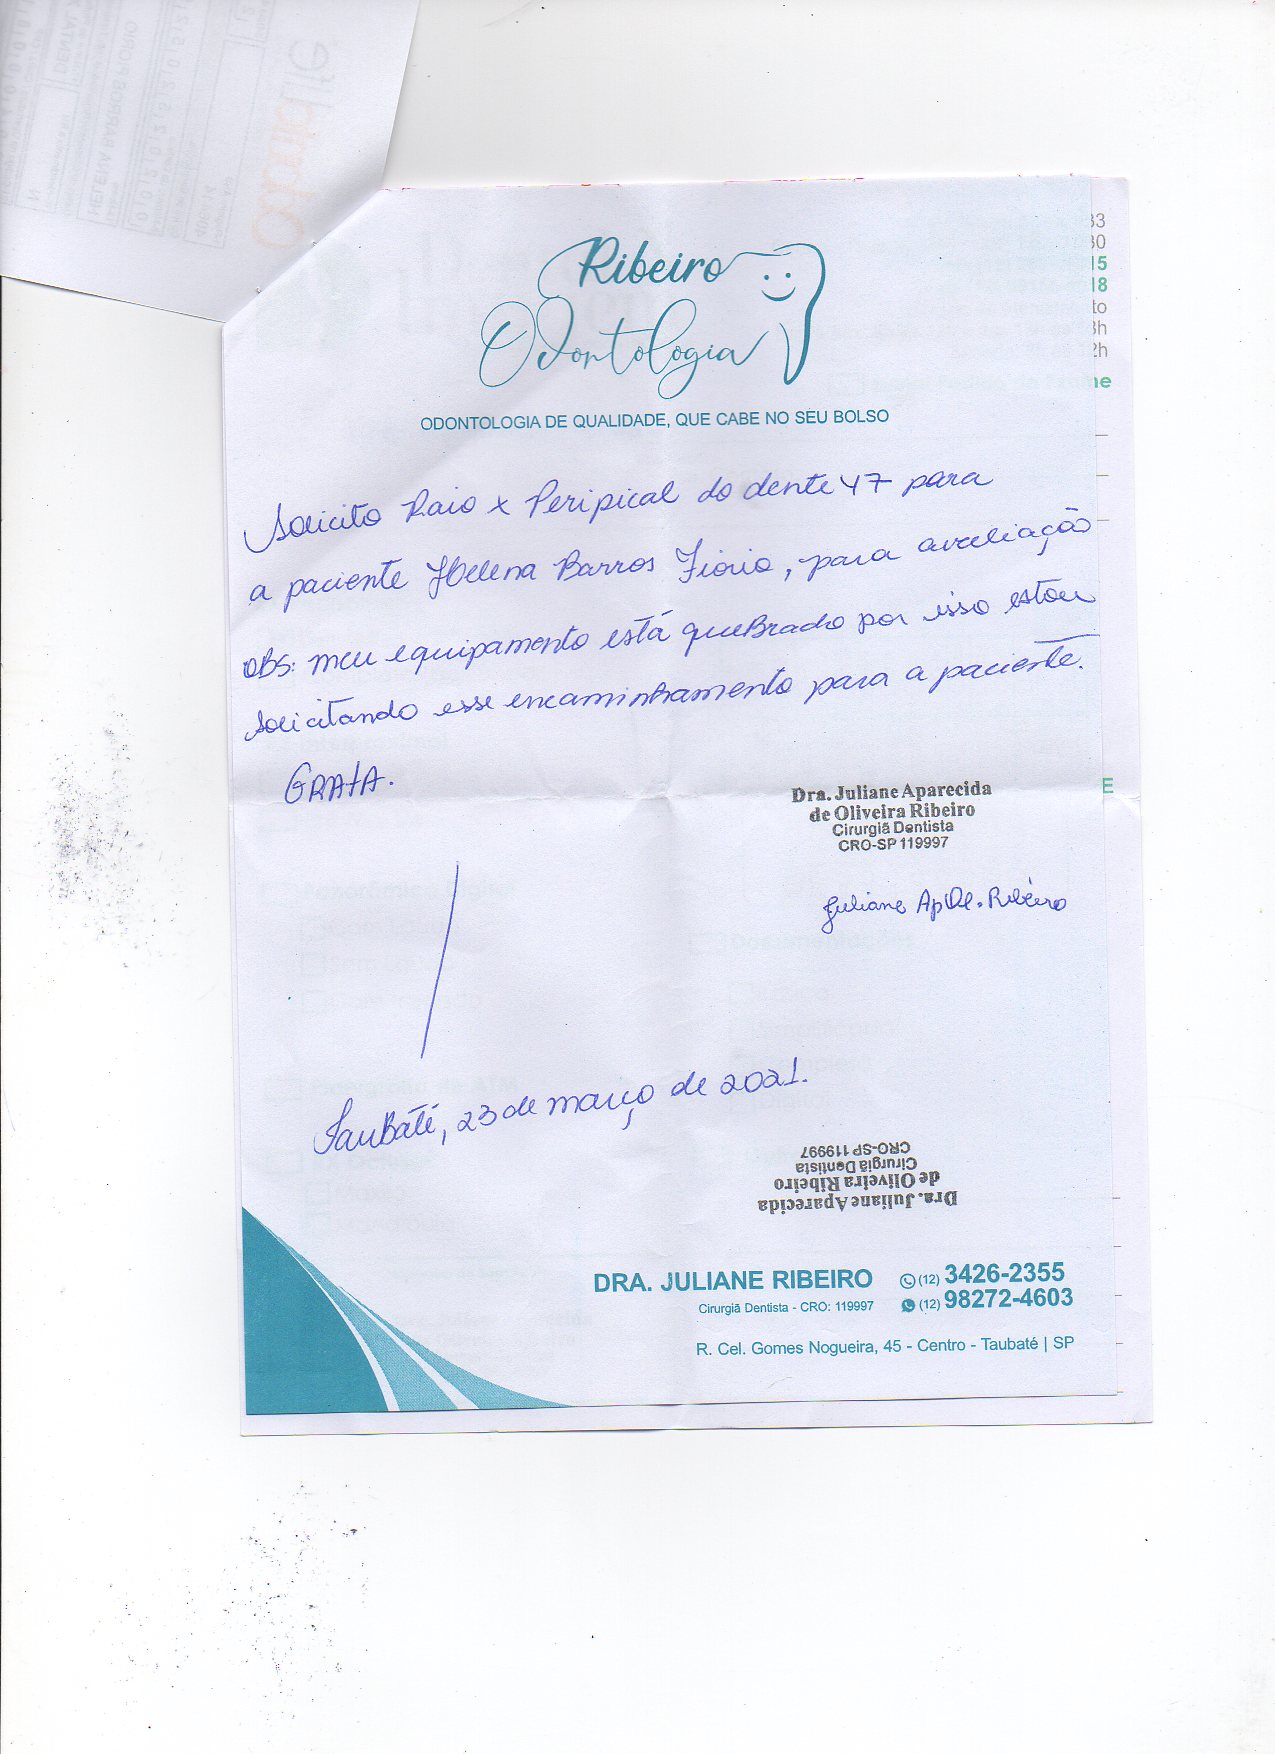 Ribeiro
Odontologia
ODONTOLOGIA DE QUALIDADE, QUE CABE NO SEU BOLSO
Solicito Raio x Peripical do dente 47 para
a paciente Helena Barros Fiorio, para avaliação
OBS: meu equipamento está queBrado por isso estou
solicitando esse encaminhamento para a paciente.
GRATA.
Dra. Juliane Aparecida
de Oliveira Ribeiro
Cirurgiã Dentista
CRO-SP 119997
Juliane Ap Ol. Ribeiro
Taubaté, 23 de março de 2021.
Dra. Juliane Aparecida
de Oliveira Ribeiro
Cirurgiã Dentista
CRO-SP 119997
DRA. JULIANE RIBEIRO (12) 3426-2355
Cirurgiã Dentista - CRO: 119997 (12) 98272-4603
R. Cel. Gomes Nogueira, 45 - Centro - Taubaté | SP